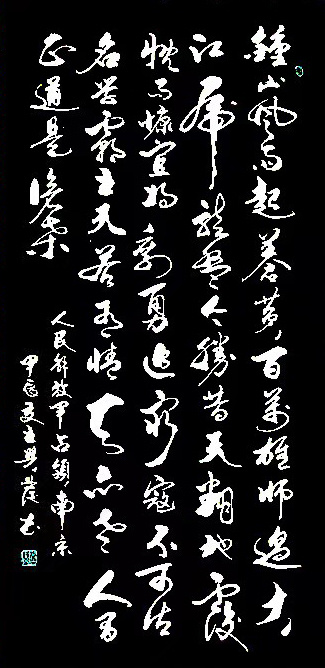 鍾山風雨起蒼黃百萬雄師過大
江虎龍盤今勝昔天翻地覆
慨而慷宜將剩勇追窮寇不可沽
名學霸王天若有情天亦老人間
正道是滄桑
人民解放軍占領南京
甲辰夏王興書